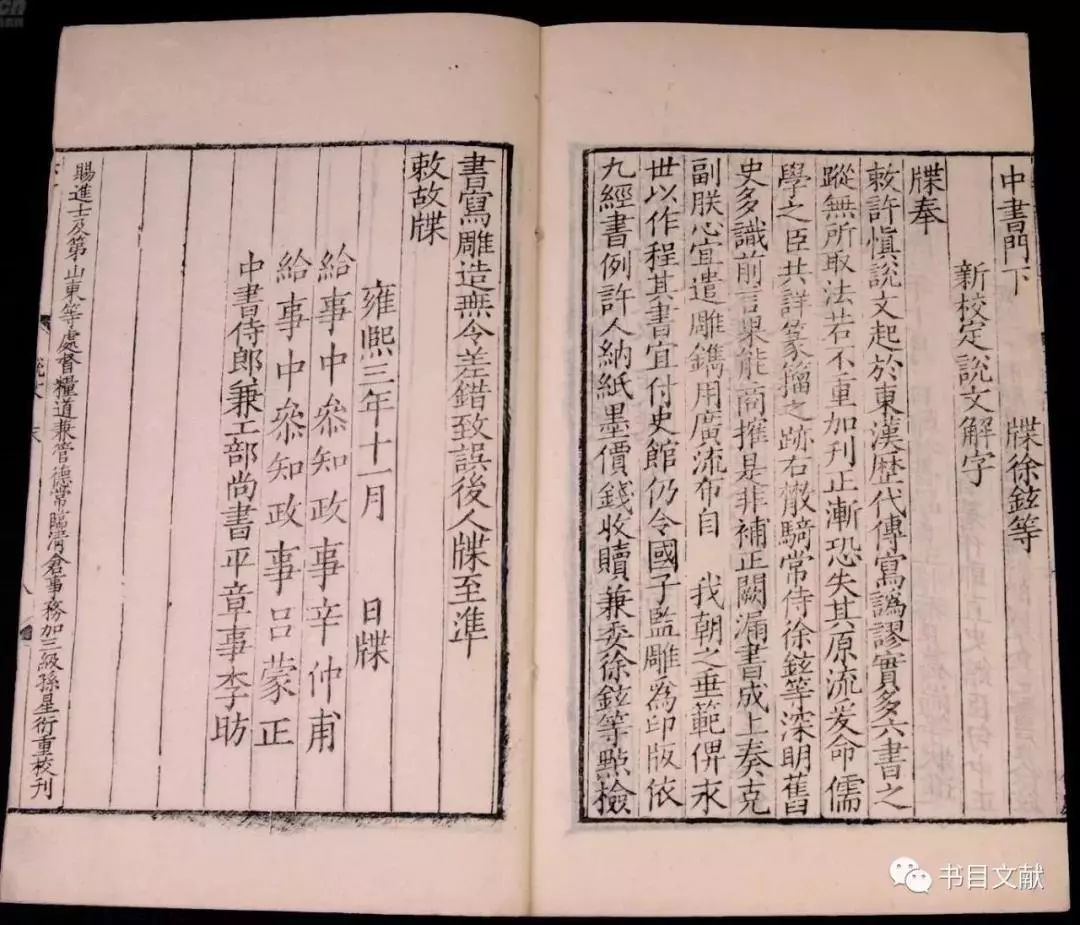 中書門下　牒徐鉉等
新校定說文解字
牒奉
敕許慎說文起於東漢歷代傳寫譌謬實多六書之
蹤無所取法若不重加刊正漸恐失其原流爰命儒
學之臣共詳篆籀之跡右散騎常侍徐鉉等深明舊
史多識前言果能商搉是非補正闕漏書成上奏克
副朕心宜遣雕鐫用廣流布自　我朝之垂範俾永
世以作程其書宜付史館仍令國子監雕為印版依
九經書例許人納紙墨價錢收贖兼委徐鉉等點檢
書寫雕造無令差錯致誤後人牒至準
敕故牒
雍熙三年十一月　日牒
給事中叅知政事辛仲甫
給事中叅知政事呂蒙正
中書侍郎兼工部尚書平章事李昉
賜進士及第山東等處督糧道兼管德常臨清倉事務加三級孫星衍重校刊
书目文献